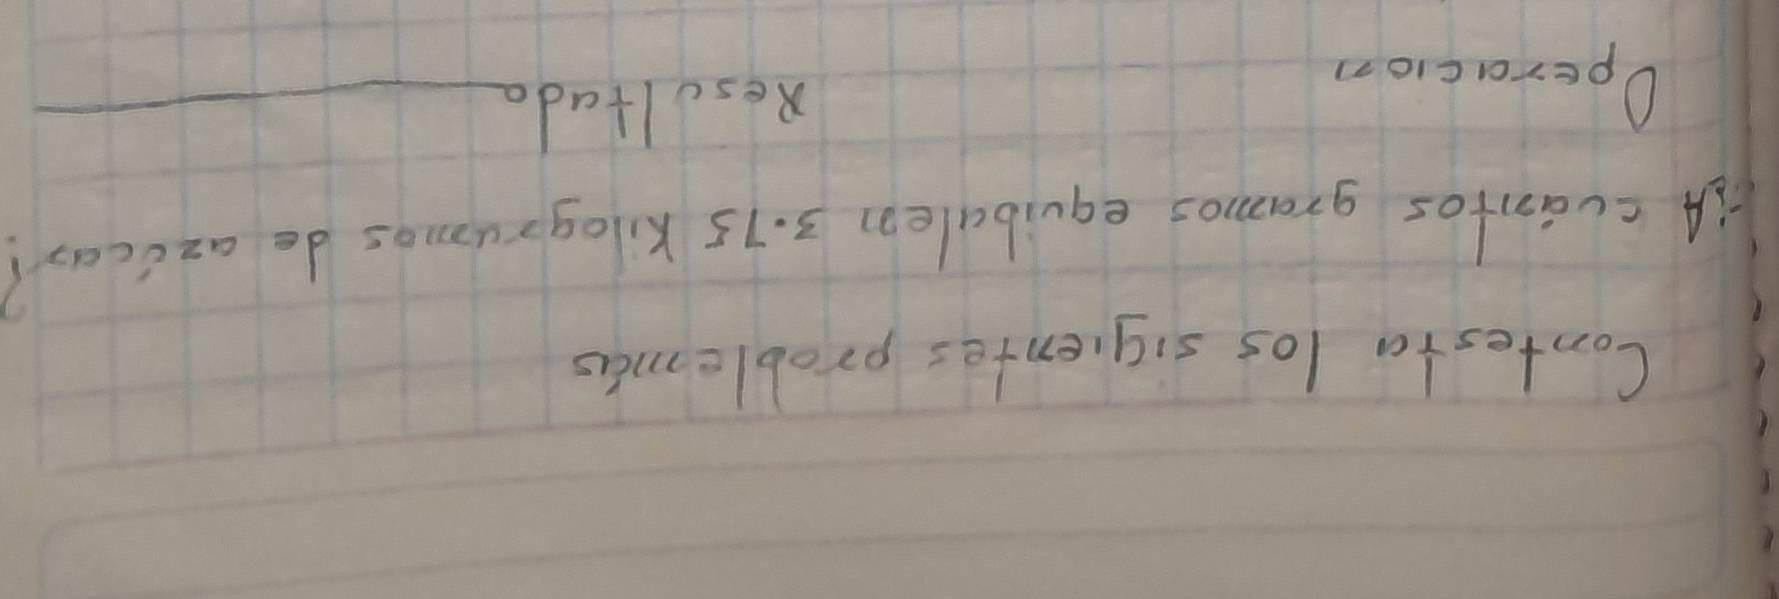 Contesta los sigientes problemas
¿A cuántos gramos equibalen 3.75 Kilogramos de azúcar?
Operacion Resultado